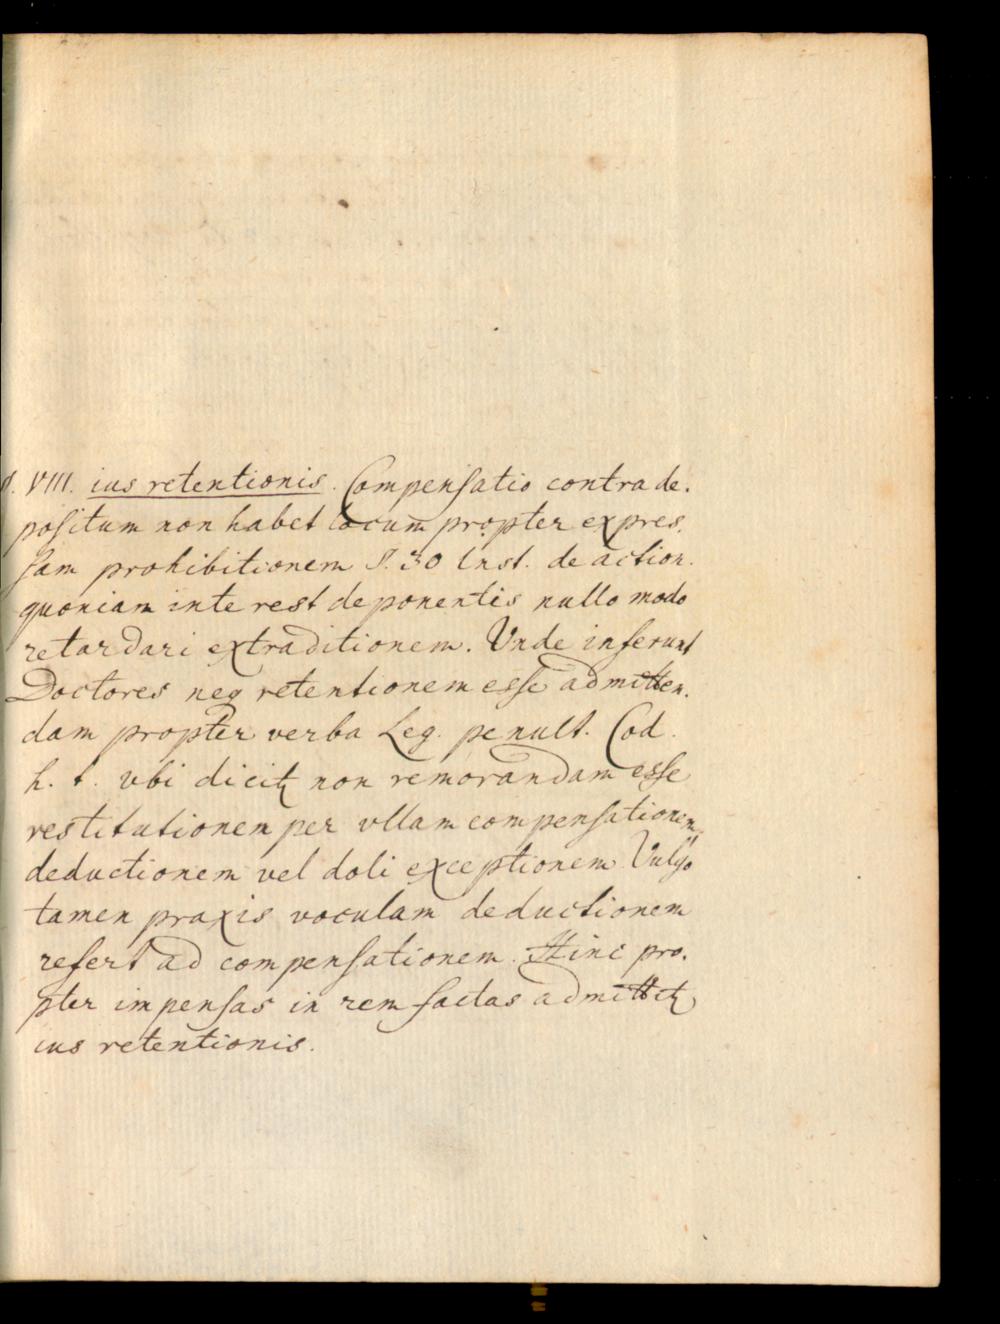 §. VIII. ius retentionis. Compensatio contra de.
positum non habet locum propter expres.
sam prohibitionem §. 30 Inst. de action.
quoniam interest deponentis nullo modo
retardari extraditionem. Unde inferunt
Doctores neq retentionem esse admitten.
dam propter verba Leg. penult. Cod.
h. t. vbi dicitꝫ non remorandam esse
restitutionem per vllam compensationem
deductionem vel doli exceptionem Vulgo
tamen praxis voculam deductionem
refert ad compensationem. Hinc pro.
pter impensas in rem factas admittitꝫ
ius retentionis.